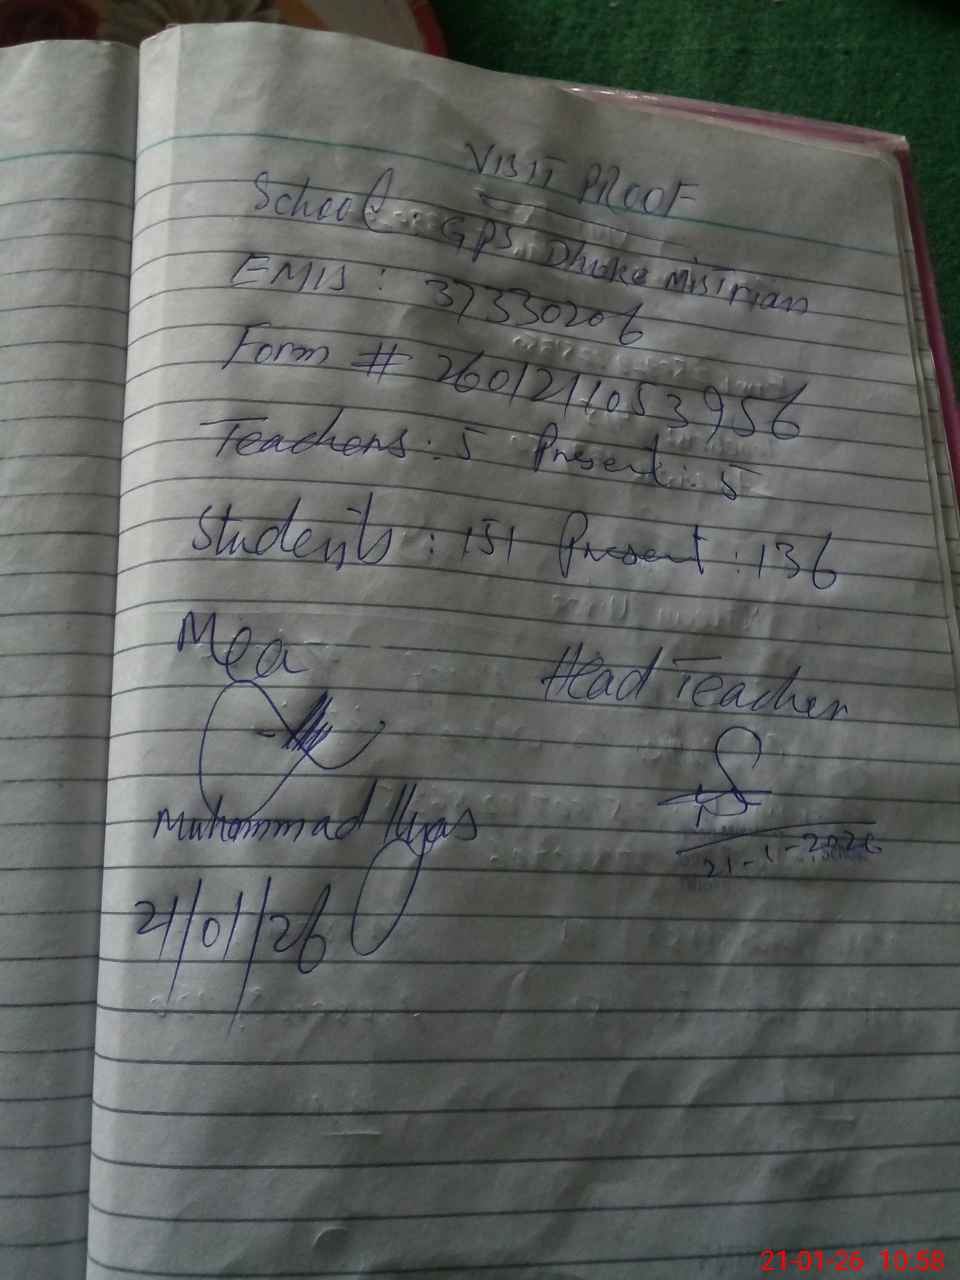 VISIT PROOF
School : GPS Dhoke Mistrian
EMIS : 37330206
Form # 2601211053956
Teachers : 5 Present : 5
Students : 151 Present : 136
Mea
Head Teacher
Muhammad Ilyas
21-1-2026
21/01/26
21-01-26 10:58